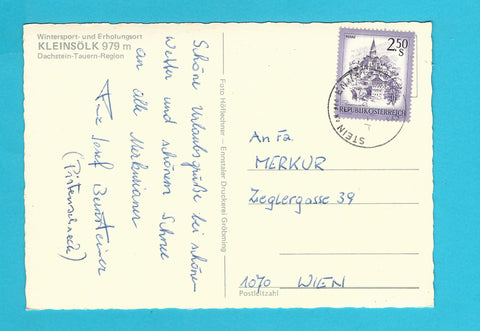 Wintersport- und Erholungsort
KLEINSÖLK 979 m
Dachstein-Tauern-Region
Schöne Urlaubsgrüße bei schönem
Wetter und schönem Schnee
an alle Merkurianer
Josef
Foto Höflechner - Ennstaler Druckerei Gröbming
2.50
S
REPUBLIK ÖSTERREICH
STEIN
An Fa.
MERKUR
Zieglergasse 39
1070 WIEN
Postleitzahl